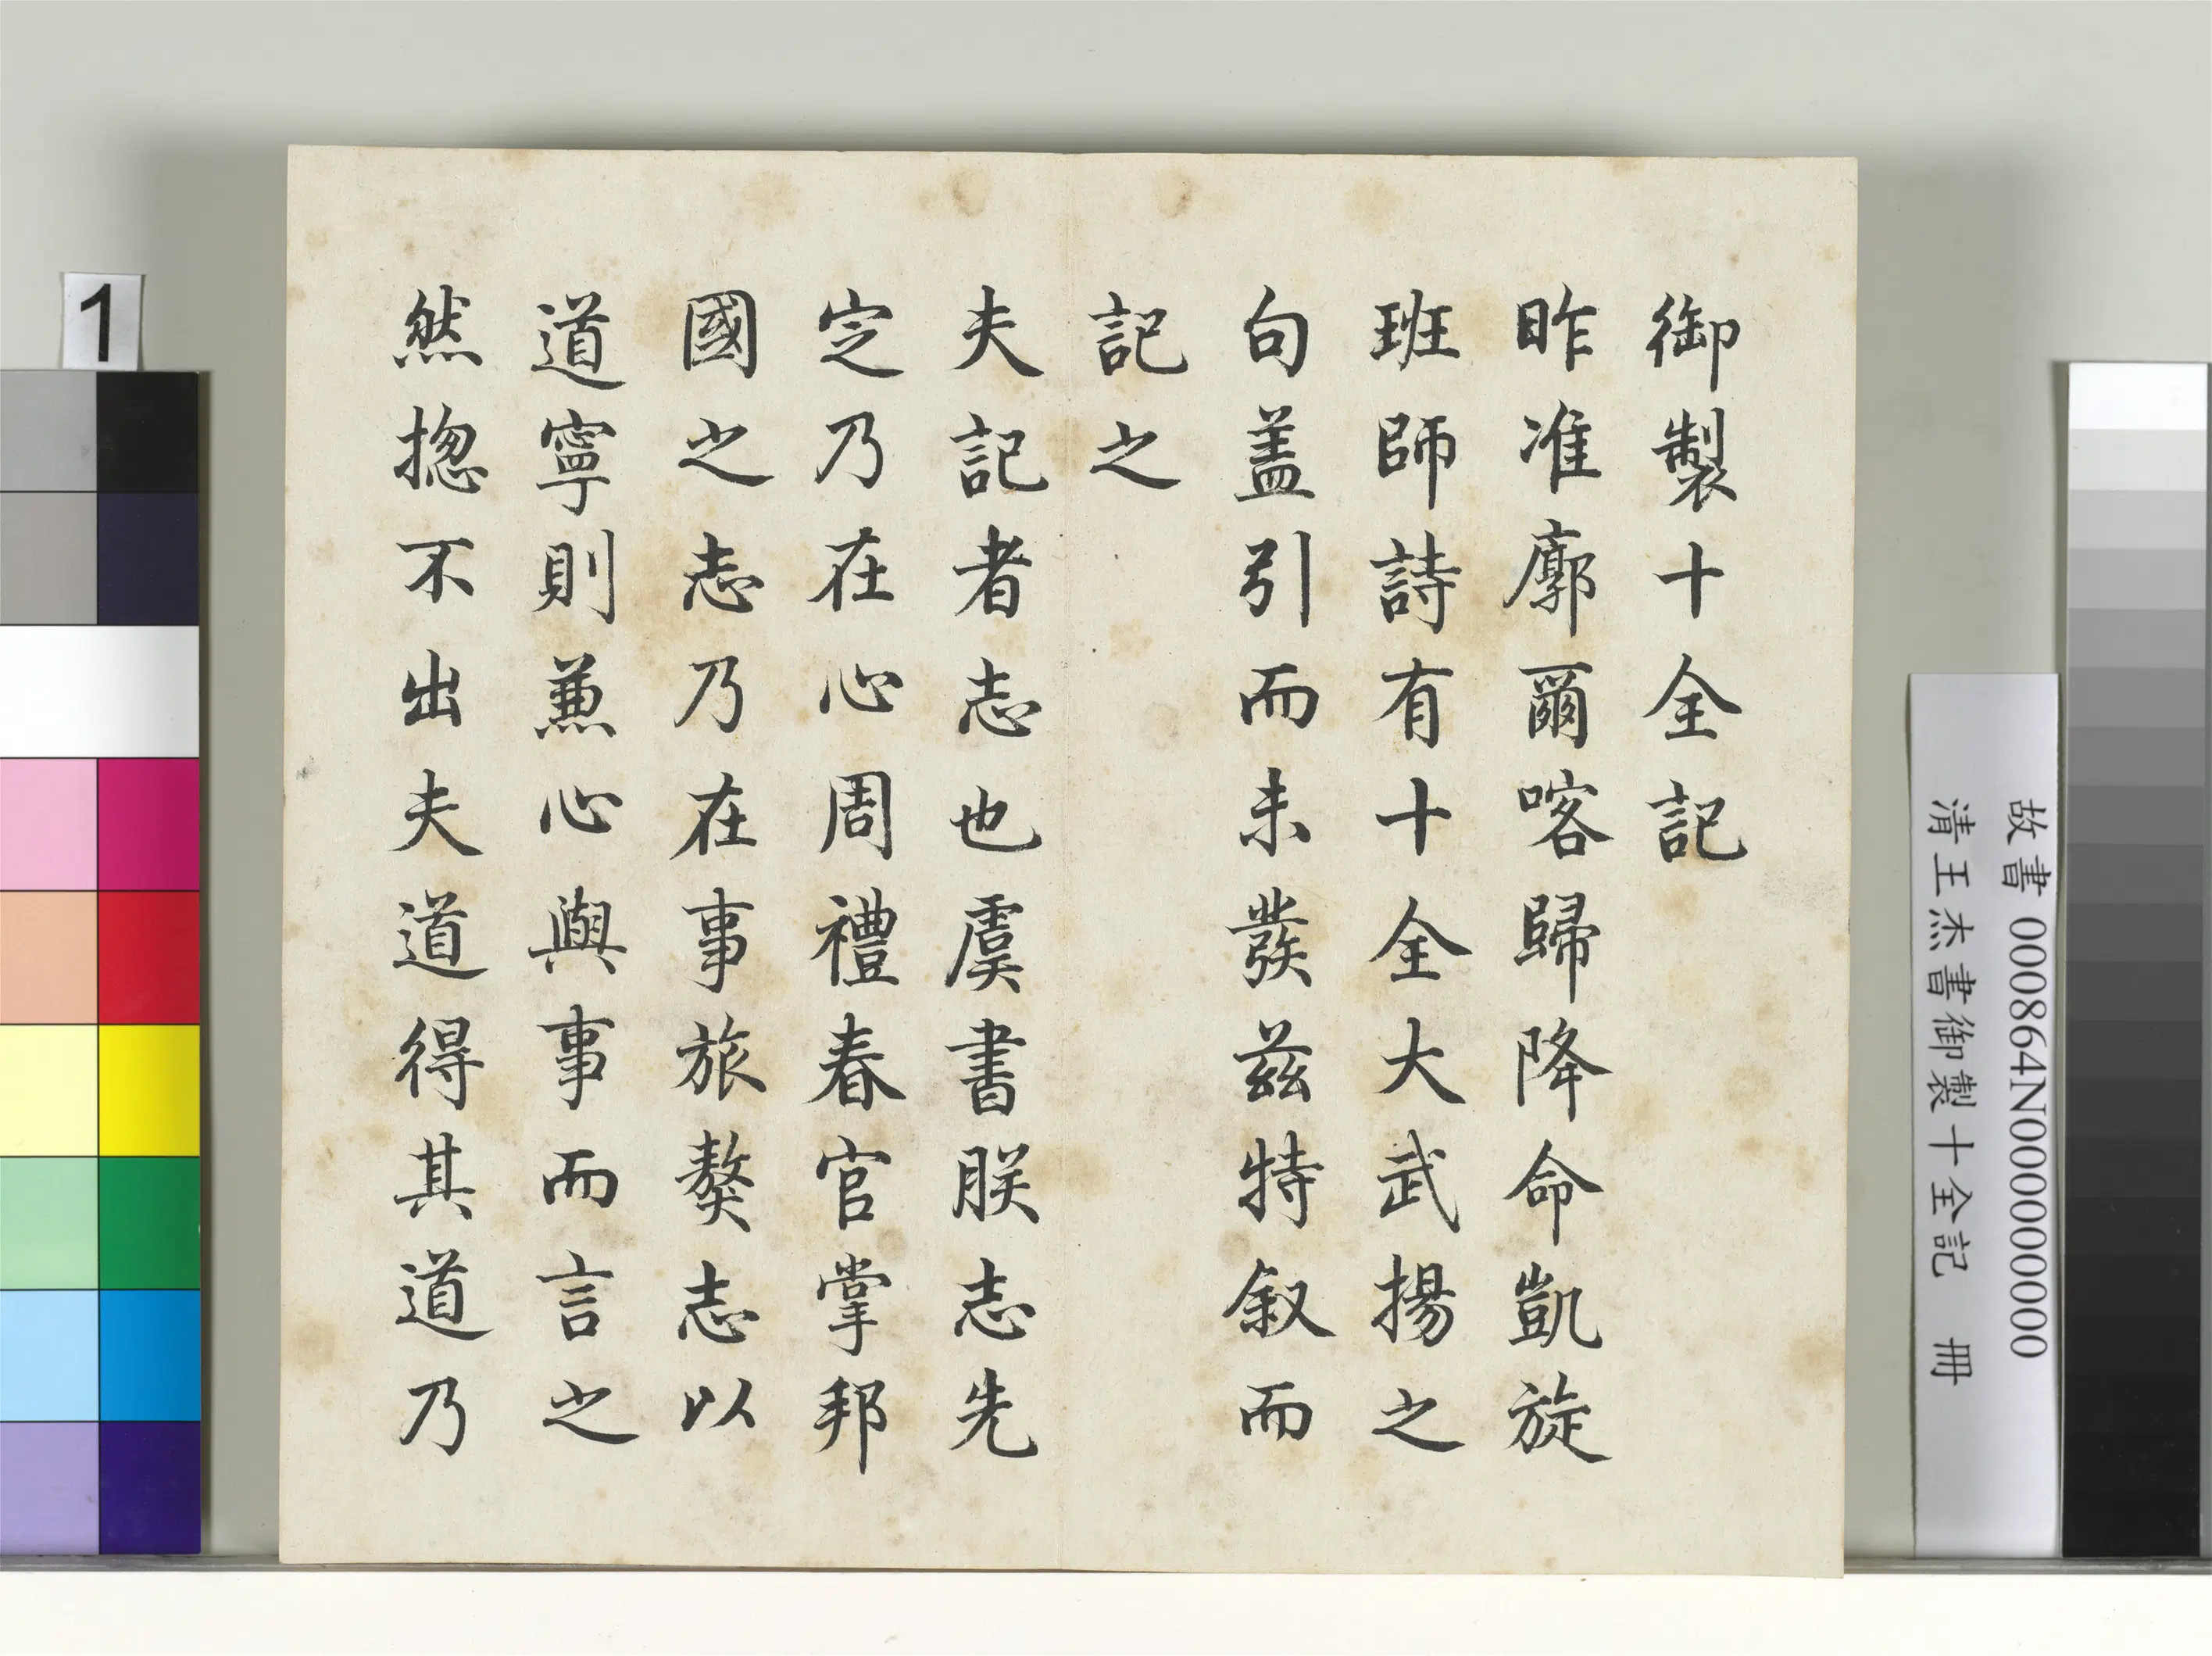 御製十全記
昨准廓爾喀歸降命凱旋
班師詩有十全大武揚之
句盖引而未發兹特叙而
記之
夫記者志也虞書朕志先
定乃在心周禮春官掌邦
國之志乃在事旅獒志以
道寧則兼心與事而言之
然揔不出夫道得其道乃
1
故書 000864N000000000
清王杰書御製十全記 冊